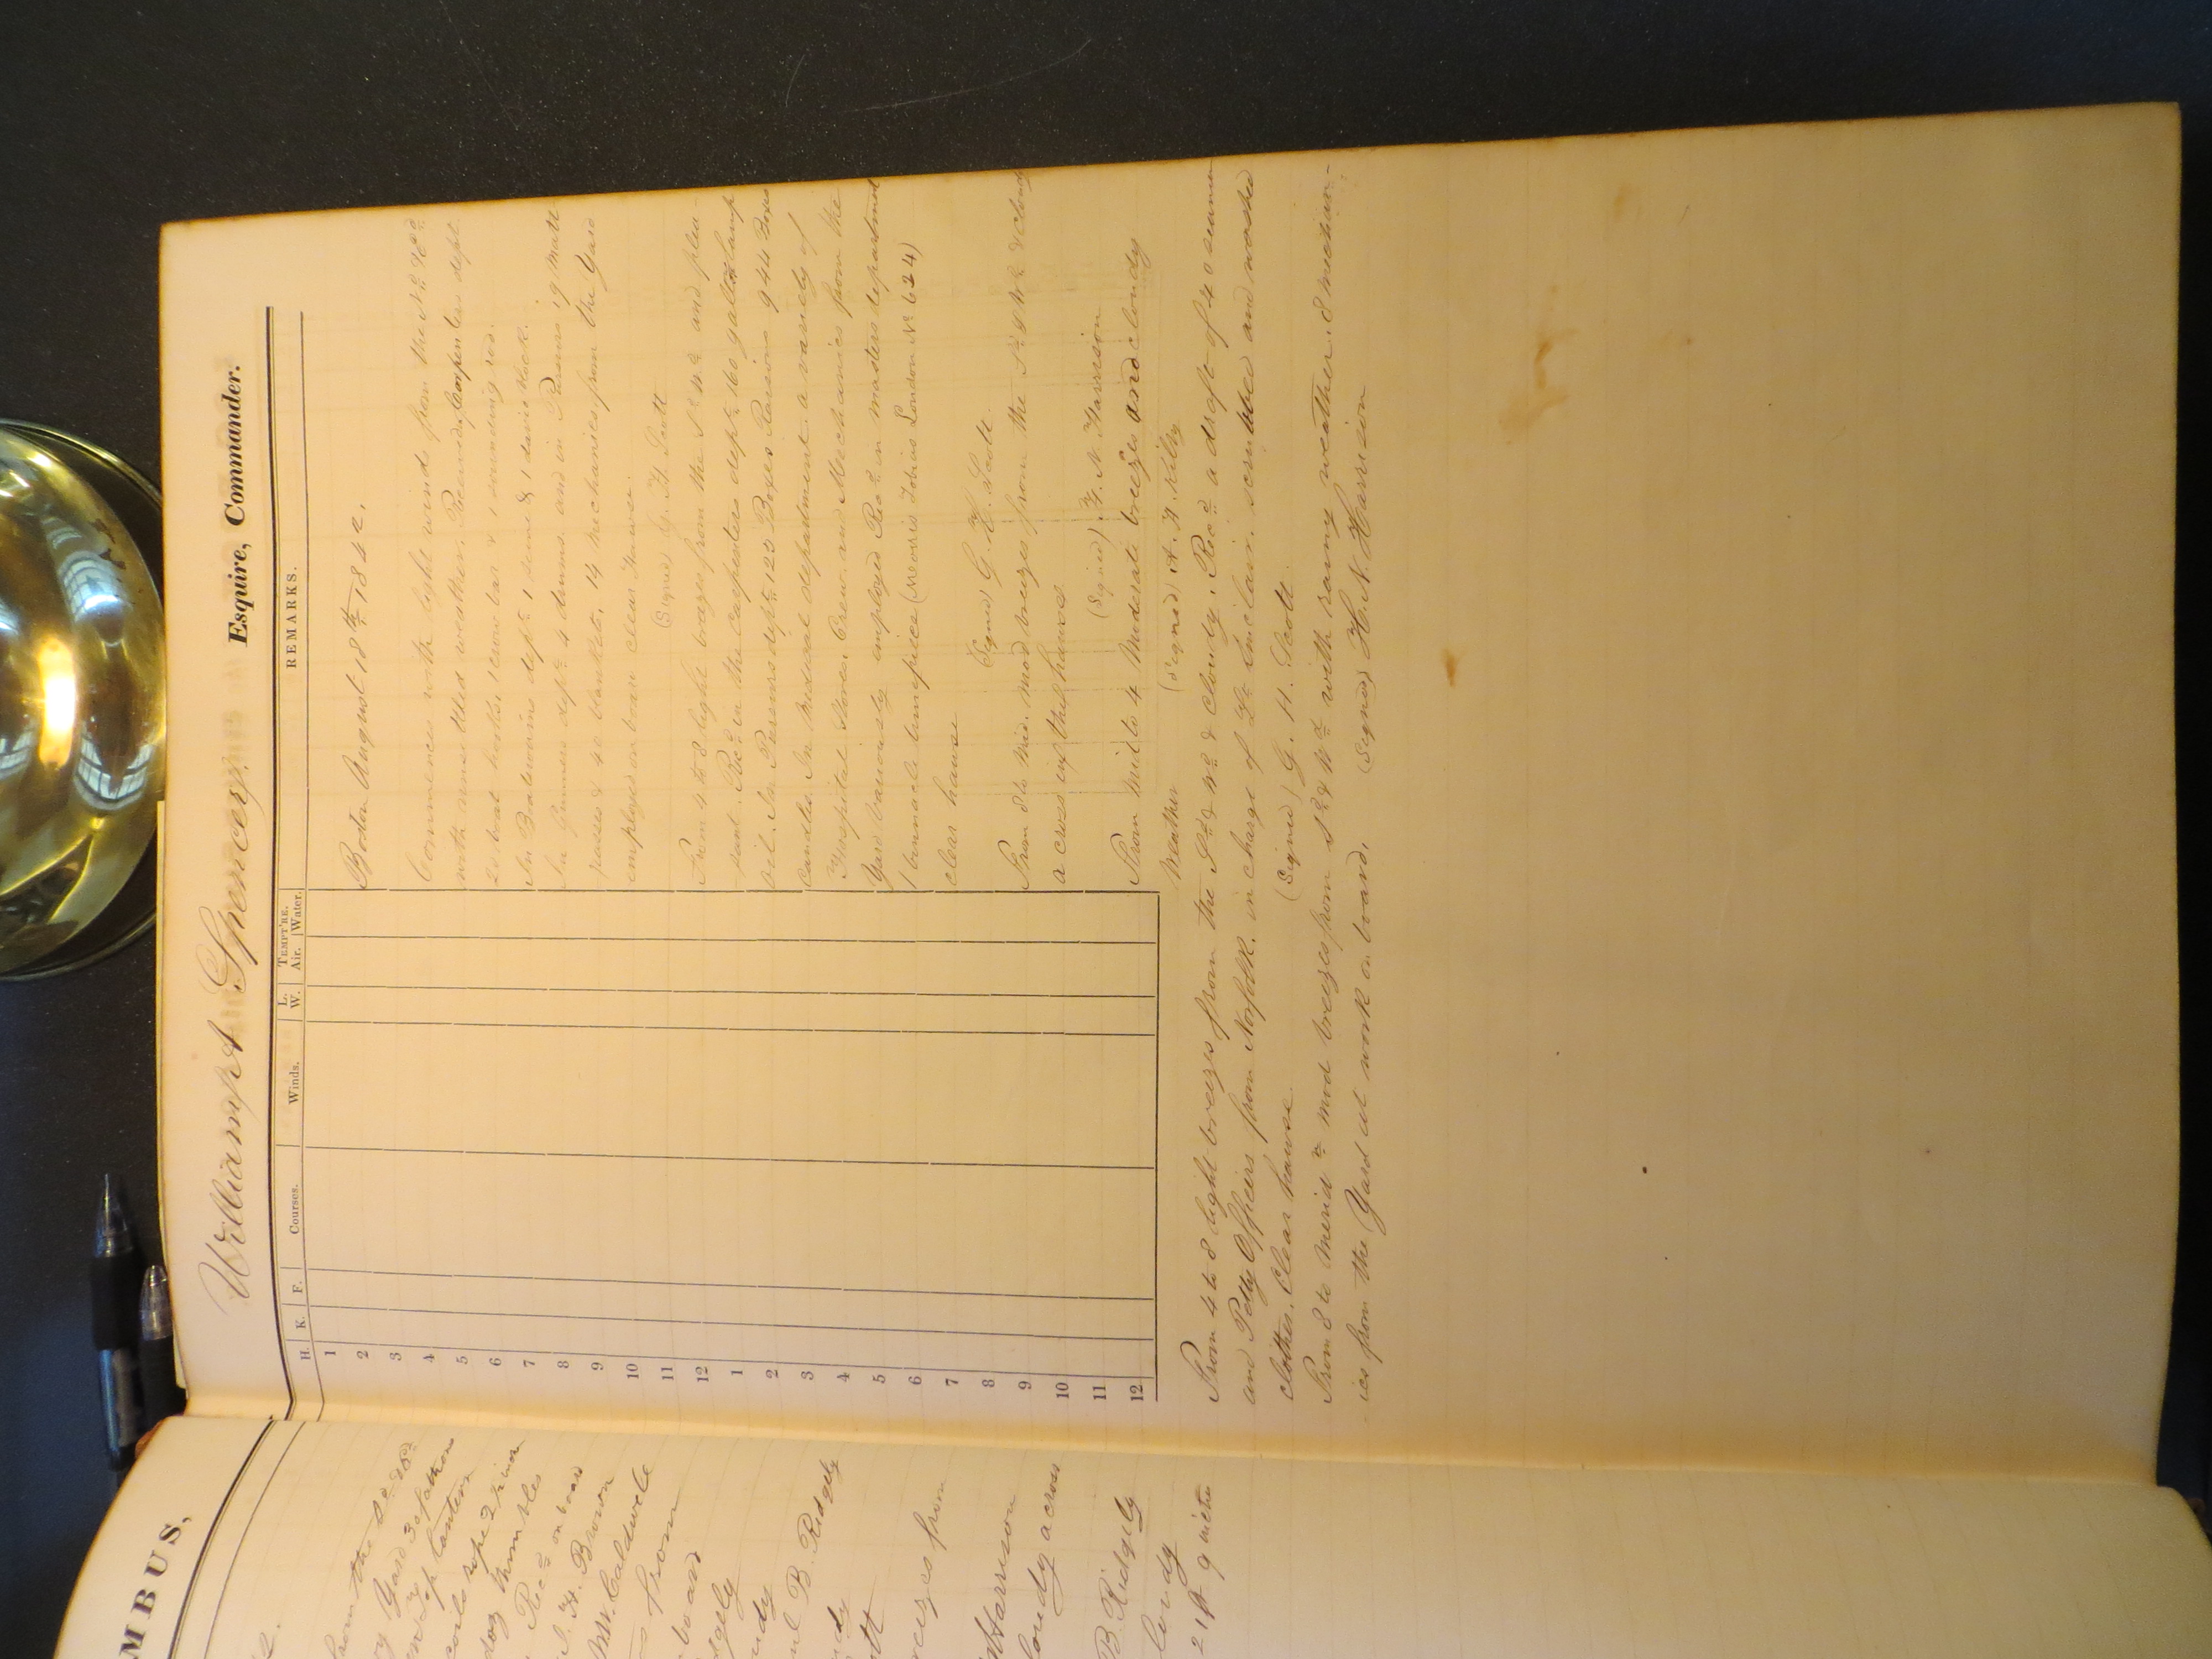 MBUS,
from the
Yard 30 fathoms
top lantern
coils rope 2½ inch
doz thimbles
Recd on board
J. H. Brown
Wm. Caldwele
from
board
dgely
udy
B. Ridgely
dy
tt
from
Harrison
loudy across
B. Ridgely
loudy
21ft 9 inches
William A Spencer
Esquire, Commander.
H. K. F. Courses. Winds. L. W. TEMPT'RE. Air. Water. REMARKS.
1
2
3
4
5
6
7
8
9
10
11
12
1
2
3
4
5
6
7
8
9
10
11
12
Boston August 18th 1842.
Commences with light winds from the Nd &
with unsettled weather. Received, Carpenters dept
20 boat hooks, 1 crow bar & 1 sounding rod.
In Boatswains dept 1 & 1 davit block.
In Gunners dept 4 drums. and in Pursers 19 matt-
rasses & 40 blankets, 14 mechanics from the Yard
employed on board clear Hawse.
(Signed) G. H. Scott
From 4 to 8 light breezes from the Sd & Wd and pleas-
ant. Recd in the carpenters dept 160 gallons lamp
oil. In Pursers dept 125 Boxes Raisins 944 Boxes
Candles In Medical department a variety of
Hospital Stores, Crew and Mechanics from the
Yard variously employed Recd in masters department
1 binnacle timepiece (Morris Tobias London No 624)
clear hawse
(Signed) G. H. Scott.
From 8 to Mid. mod breezes from the Sd & Wd & cloudy
a cross in the hawse
(Signed) H. N. Harrison
From Mid to 4 Moderate breezes and cloudy
Weather
(Signed) A. H. Kilty
From 4 to 8 light breezes from the Sd & Wd & Cloudy. Recd a draft of 40 seamen
and Petty Officers from Norfolk. in charge of Lt Sinclair. scrubbed and washed
clothes. Clear hawse.
(Signed) G. H. Scott
From 8 to Merid n mod breezes from Sd & Wd with rainy weather. 8 mechan-
ics from the Yard at work on board.
(Signed) H. N. Harrison